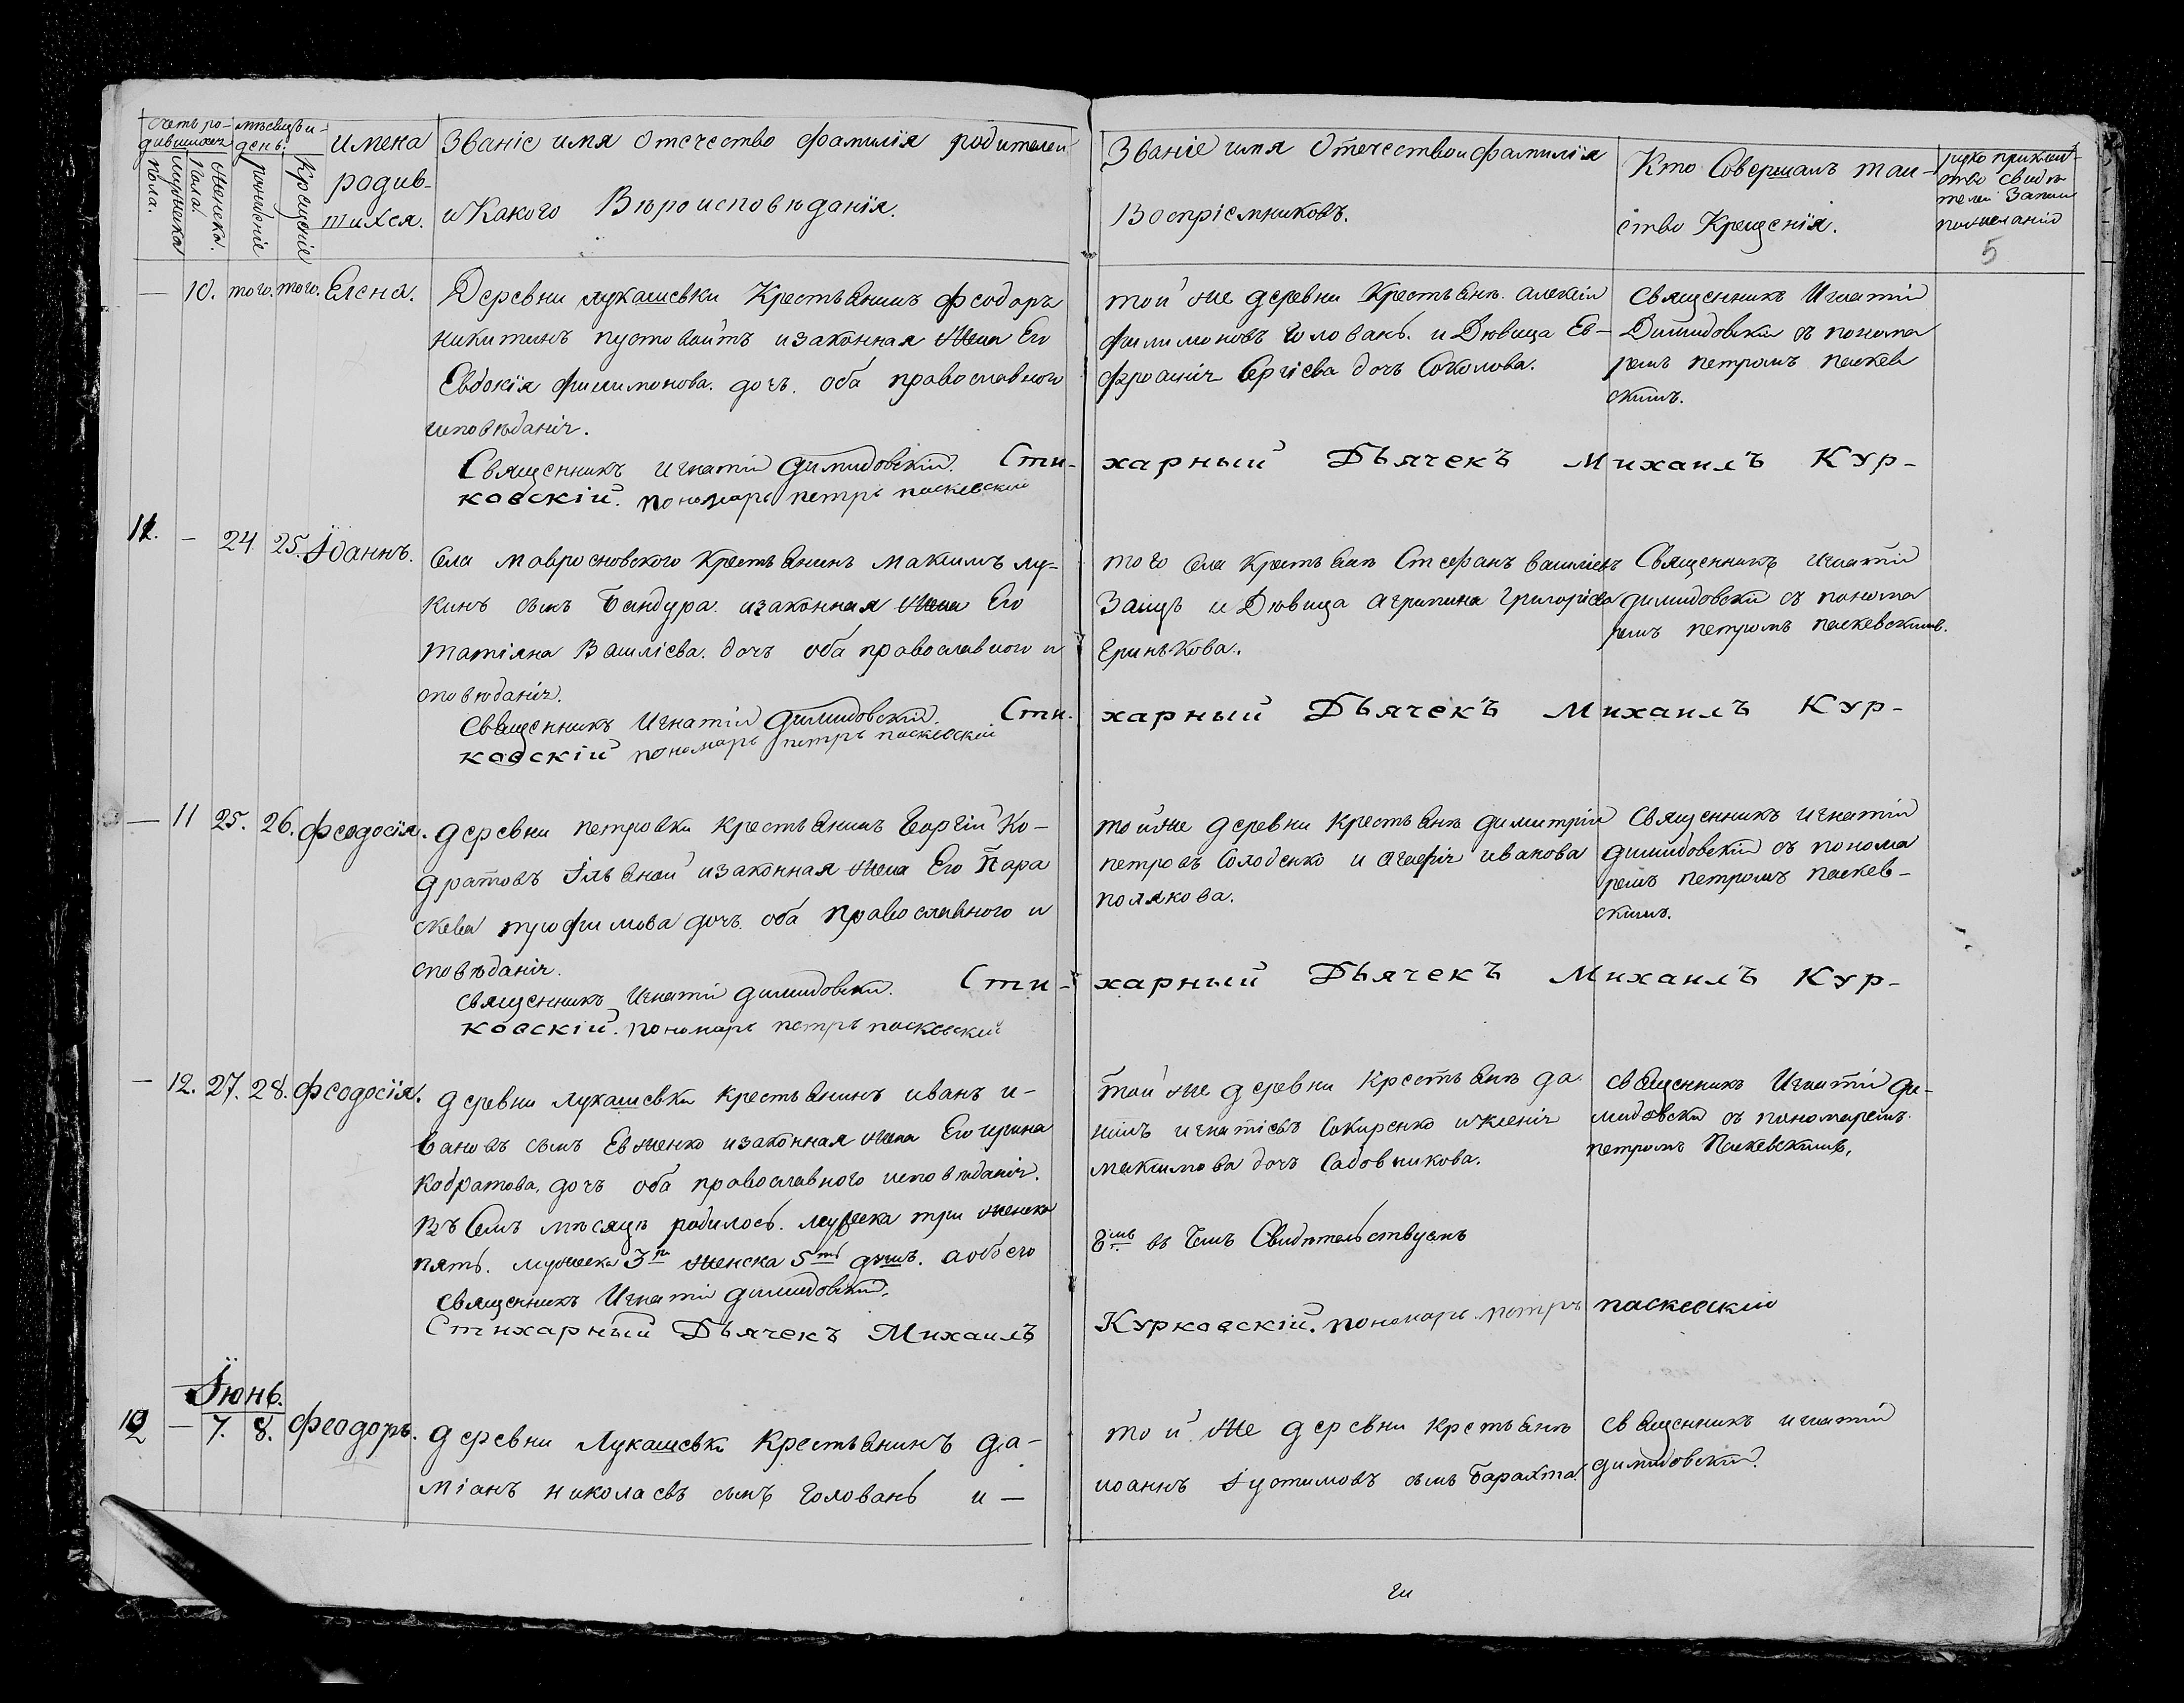 Счетъ ро-
дившихся
мѣсяцъ и
день:
имена
родив-
шихся.
мужеска
пола.
женска.
пола.
рожденіе
крещеніе
Званіе имя Отечество фамилія родителей
и Какого Вѣроисповѣданія.
Званіе имя Отечество и фамилія
Воспріемниковъ.
Кто Совершалъ таи-
ство Крещенія.
руко приклад-
ство свидѣ
телей Записи
по желанію
5
— 10. того. того. Елена.
Деревни лукашевки Крестьянинъ феодоръ
никитинъ пустовойтъ и законная жена Его
Евдокія филимонова. дочь. оба православного
исповѣданія.
той же деревни Крестьянъ. алексій
филимоновъ Головань. и Дѣвица Ев-
фросинія Сергіева дочь Соколова.
Священникъ Игнатій
Димидовскій съ понома
ремъ петромъ паскев
скимъ.
Священникъ игнатій димидовскій. Сти-
харный Дьячекъ Михаилъ Кур-
ковскій. пономарь петръ паскевскій
11. — 24. 25. Іоаннъ.
Села мавросновского крестьянинъ максимъ лу-
кинъ сынъ Бандура. и законная жена Его
татіяна Василіева. дочь оба православного и
сповѣданія.
того Села Крестьянъ Стефанъ василіевъ
Заицъ и Дѣвица агрипина григоріева
Гринькова.
Священникъ игнатій
димидовскій съ понома
ремъ петромъ паскевскимъ.
священникъ Игнатій димидовскій. Сти-
харный Дьячекъ Михаилъ Кур-
ковскій пономарь петръ паскевскій
— 11 25. 26. феодосія.
деревни петровки крестьянинъ Георгій Ко-
дратовъ Ільяной и законная жена Его Пара
скева трофимова дочь. оба православного и
сповѣданія.
той же деревни крестьянъ димитрій
петровъ Солоденко и агафія иванова
полякова.
Священникъ игнатій
димидовскій съ понома
ремъ петромъ паскев-
скимъ.
священникъ Игнатій димидовскій. Сти-
харный Дьячекъ Михаилъ Кур-
ковскій. пономарь петръ паскевскій
— 12. 27. 28. феодосія.
деревни лукашевки крестьянинъ иванъ и-
вановъ сынъ Евженко и законная жена Его ирина
кодратова, дочь оба православного исповѣданія.
той же деревни Крестьянъ да
ніилъ игнатіевъ Сокиренко и ксенія
максимова дочь Садовникова.
священникъ Игнатій ди-
мидовскій съ пономаремъ
петромъ Паскевскимъ,
Въ Семъ мѣсяцѣ родилось. мужеска три женска
пять. мужеска 3 и женска 5 ть душъ. а обоего
8 мь въ Чемъ Свидѣтельствуемъ
священникъ Игнатій димидовскій.
Стихарный Дьячекъ Михаилъ
Курковскій. пономарь петръ паскевскій
Іюнь.
12 — 7. 8. феодоръ.
деревни Лукашевки Крестьянинъ да-
міанъ николаевъ сынъ головань и —
той же деревни крестьянъ
иоаннъ Іустимовъ сынъ Барахта
священникъ игнатій
димидовскій.